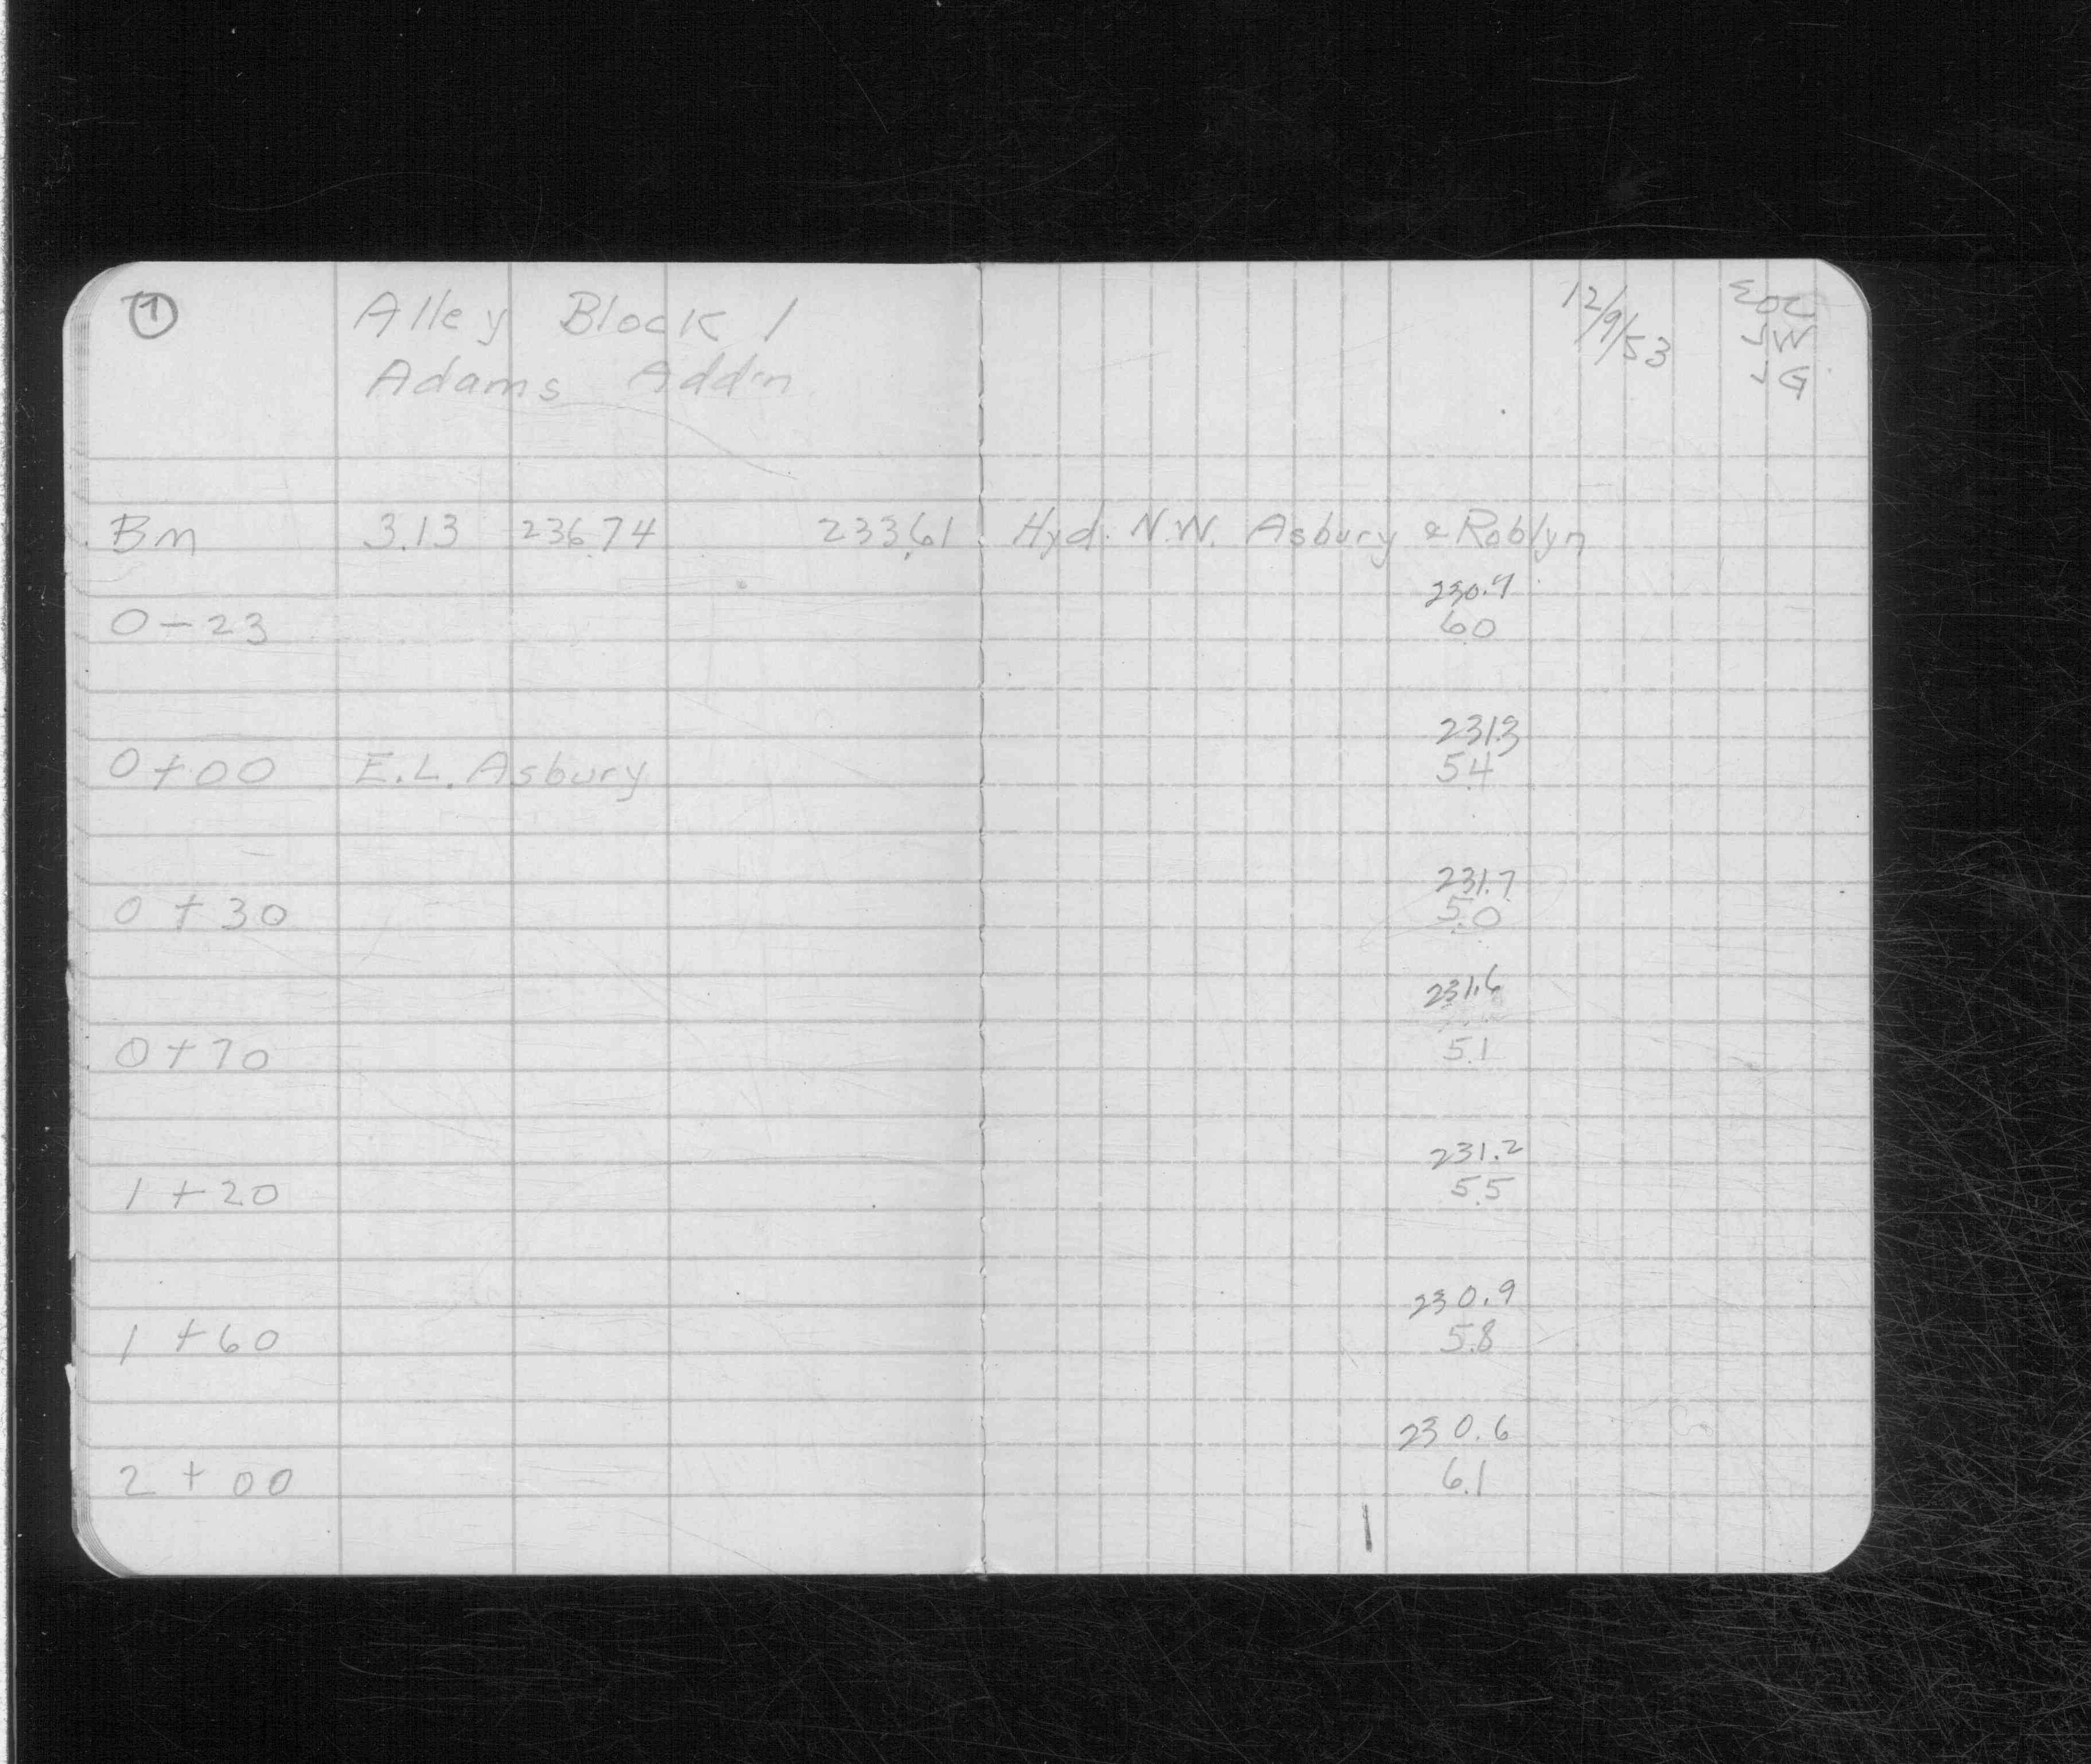 1
Alley Block 1
Adams Addn
12/9/53
EOC
JW
JG
Bm 3.13 236.74 233.61 Hyd. N.W. Asbury & Roblyn
230.7
0-23 6.0
231.3
0+00 E.L. Asbury 5.4
231.7
0+30 5.0
231.6
0+70 5.1
231.2
1+20 5.5
230.9
1+60 5.8
230.6
2+00 6.1
1